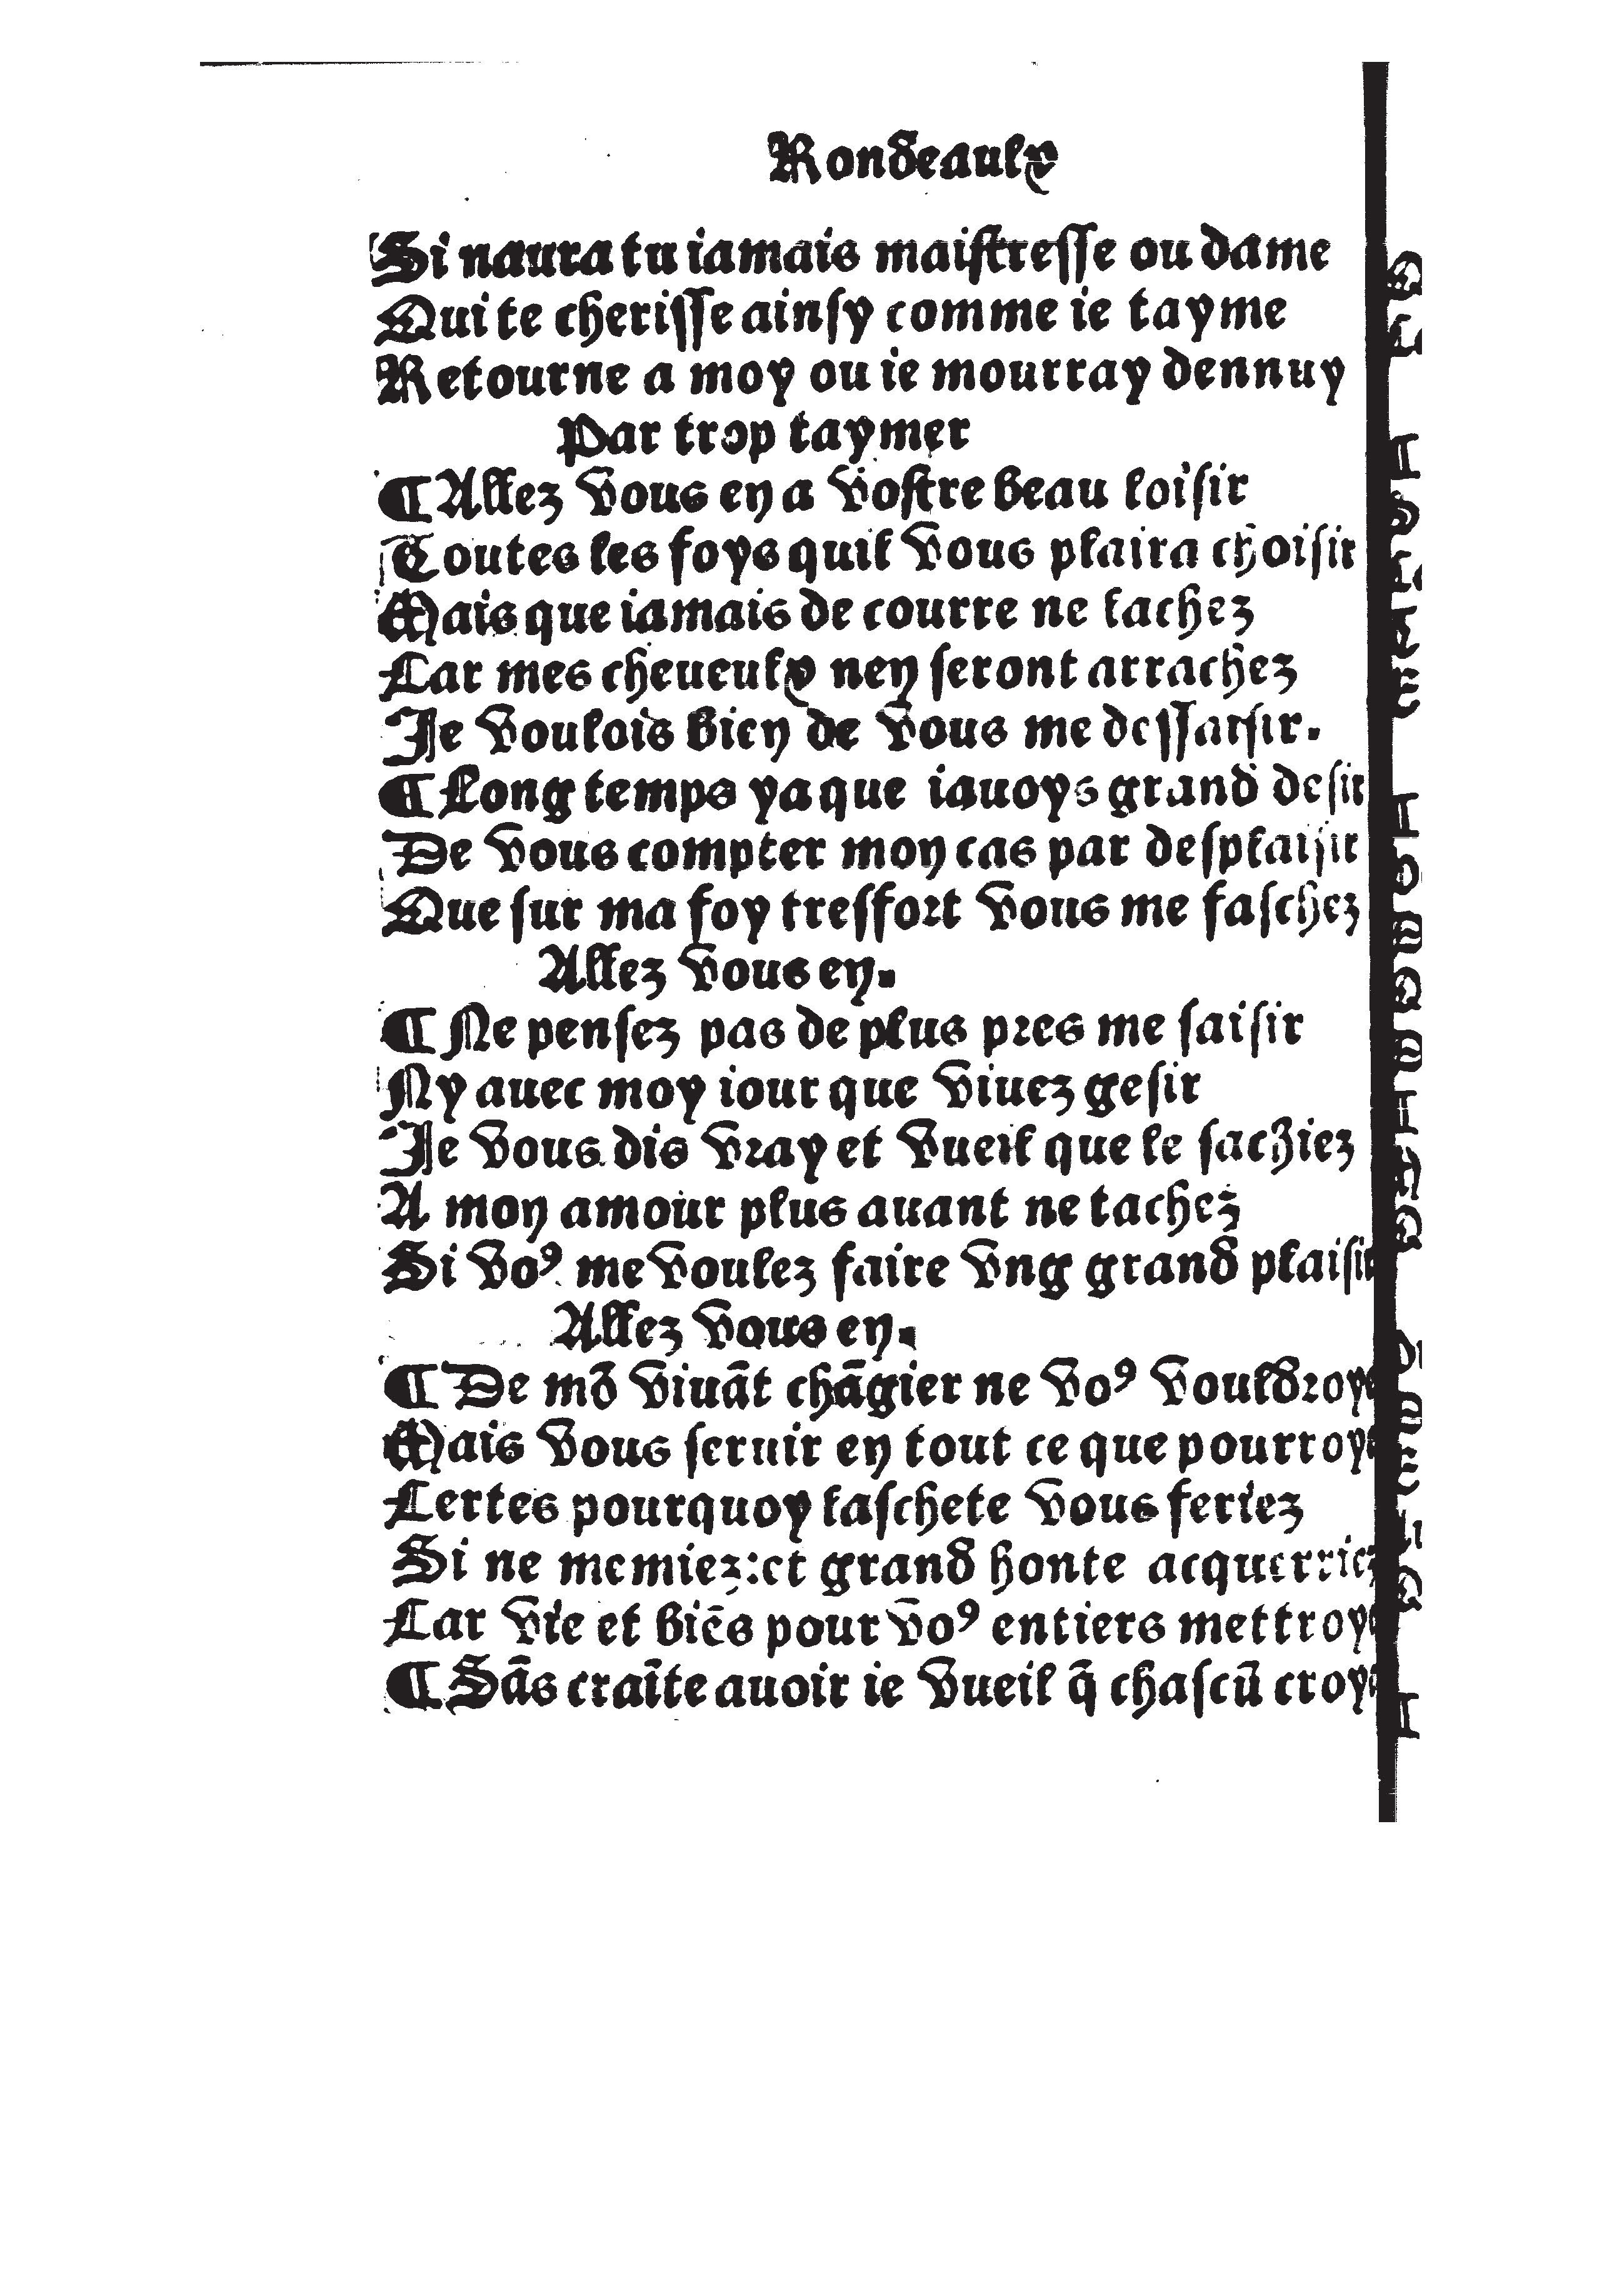 Rondeaulx
Si naura tu iamais maistresse ou dame
Qui te cherisse ainsy comme ie tayme
Retourne a moy ou ie mourray dennuy
Par trop taymer
¶ Allez vous en a vostre beau loisir
Toutes les foys quil vous plaira choisir
Mais que iamais de courre ne lachez
Car mes cheueulx nen seront arrachez
Je voulois bien de vous me dessaisir.
¶ Long temps ya que iauoys grand desir
De vous compter mon cas par desplaisir
Que sur ma foy tresfort vous me faschez
Allez vous en.
¶ Ne pensez pas de plus pres me saisir
Ny auec moy iour que viuez gesir
Je vous dis vray et vueil que le sachiez
A mon amour plus auant ne tachez
Si voꝰ me voulez faire vng grand plaisir
Allez vous en.
¶ De mõ viuãt chãgier ne voꝰ vouldroye
Mais vous seruir en tout ce que pourroye
Certes pourquoy laschete vous feriez
Si ne memiez:et grand honte acquerriez
Car vie et biẽs pour voꝰ entiers mettroye
¶ Sãs craĩte auoir ie vueil q̃ chascũ croye